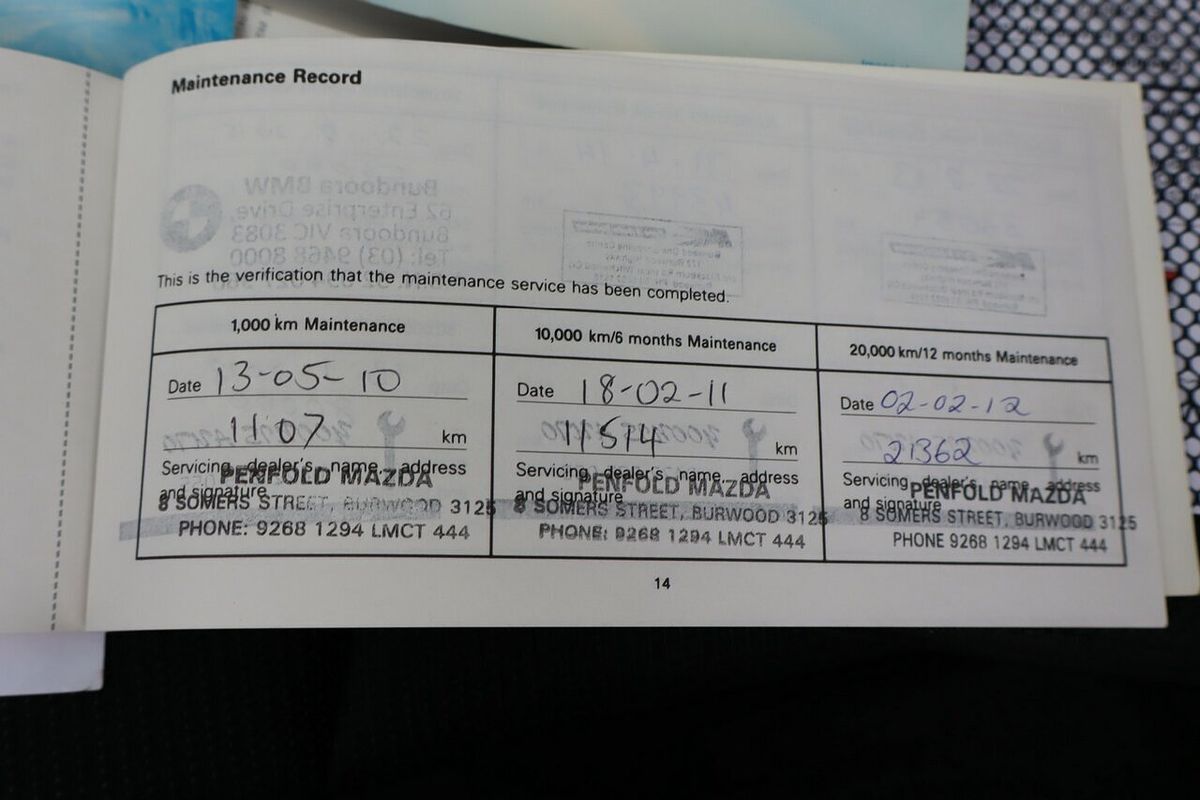 Maintenance Record
Bundoora BMW
62 Enterprise Drive,
Bundoora VIC 3083
Tel: (03) 9468 8000
This is the verification that the maintenance service has been completed.
1,000 km Maintenance
Date 13-05-10
1107 km
Servicing dealer's name, address
and signature
PENFOLD MAZDA
8 SOMERS STREET, BURWOOD 3125
PHONE: 9268 1294 LMCT 444
10,000 km/6 months Maintenance
Date 18-02-11
11514 km
Servicing dealer's name, address
and signature
PENFOLD MAZDA
8 SOMERS STREET, BURWOOD 3125
PHONE: 9268 1294 LMCT 444
20,000 km/12 months Maintenance
Date 02-02-12
21362 km
Servicing dealer's name, address
and signature
PENFOLD MAZDA
8 SOMERS STREET, BURWOOD 3125
PHONE 9268 1294 LMCT 444
14